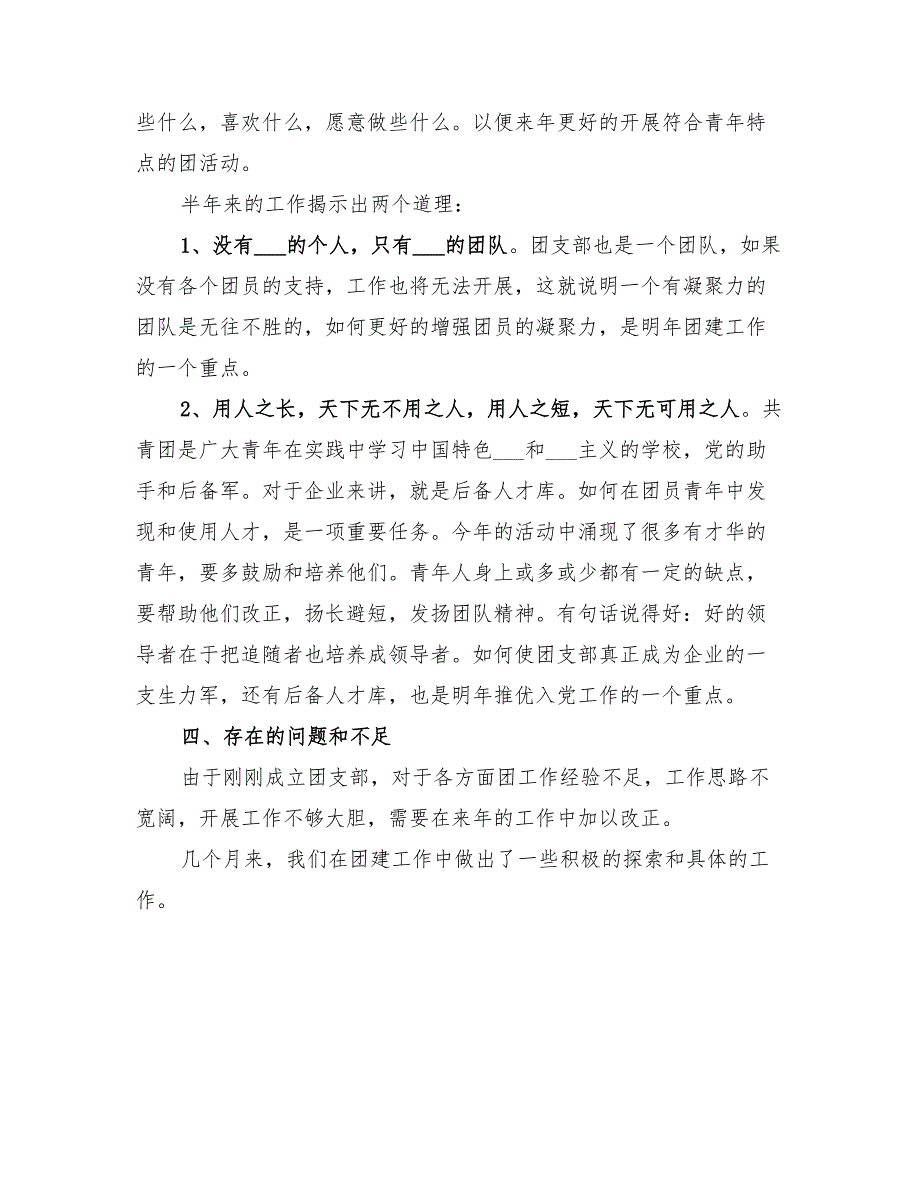 些什么，喜欢什么，愿意做些什么。以便来年更好的开展符合青年特
点的团活动。
半年来的工作揭示出两个道理：
1、没有___的个人，只有___的团队。团支部也是一个团队，如果
没有各个团员的支持，工作也将无法开展，这就说明一个有凝聚力的
团队是无往不胜的，如何更好的增强团员的凝聚力，是明年团建工作
的一个重点。
2、用人之长，天下无不用之人，用人之短，天下无可用之人。共
青团是广大青年在实践中学习中国特色___和___主义的学校，党的助
手和后备军。对于企业来讲，就是后备人才库。如何在团员青年中发
现和使用人才，是一项重要任务。今年的活动中涌现了很多有才华的
青年，要多鼓励和培养他们。青年人身上或多或少都有一定的缺点，
要帮助他们改正，扬长避短，发扬团队精神。有句话说得好：好的领
导者在于把追随者也培养成领导者。如何使团支部真正成为企业的一
支生力军，还有后备人才库，也是明年推优入党工作的一个重点。
四、存在的问题和不足
由于刚刚成立团支部，对于各方面团工作经验不足，工作思路不
宽阔，开展工作不够大胆，需要在来年的工作中加以改正。
几个月来，我们在团建工作中做出了一些积极的探索和具体的工
作。